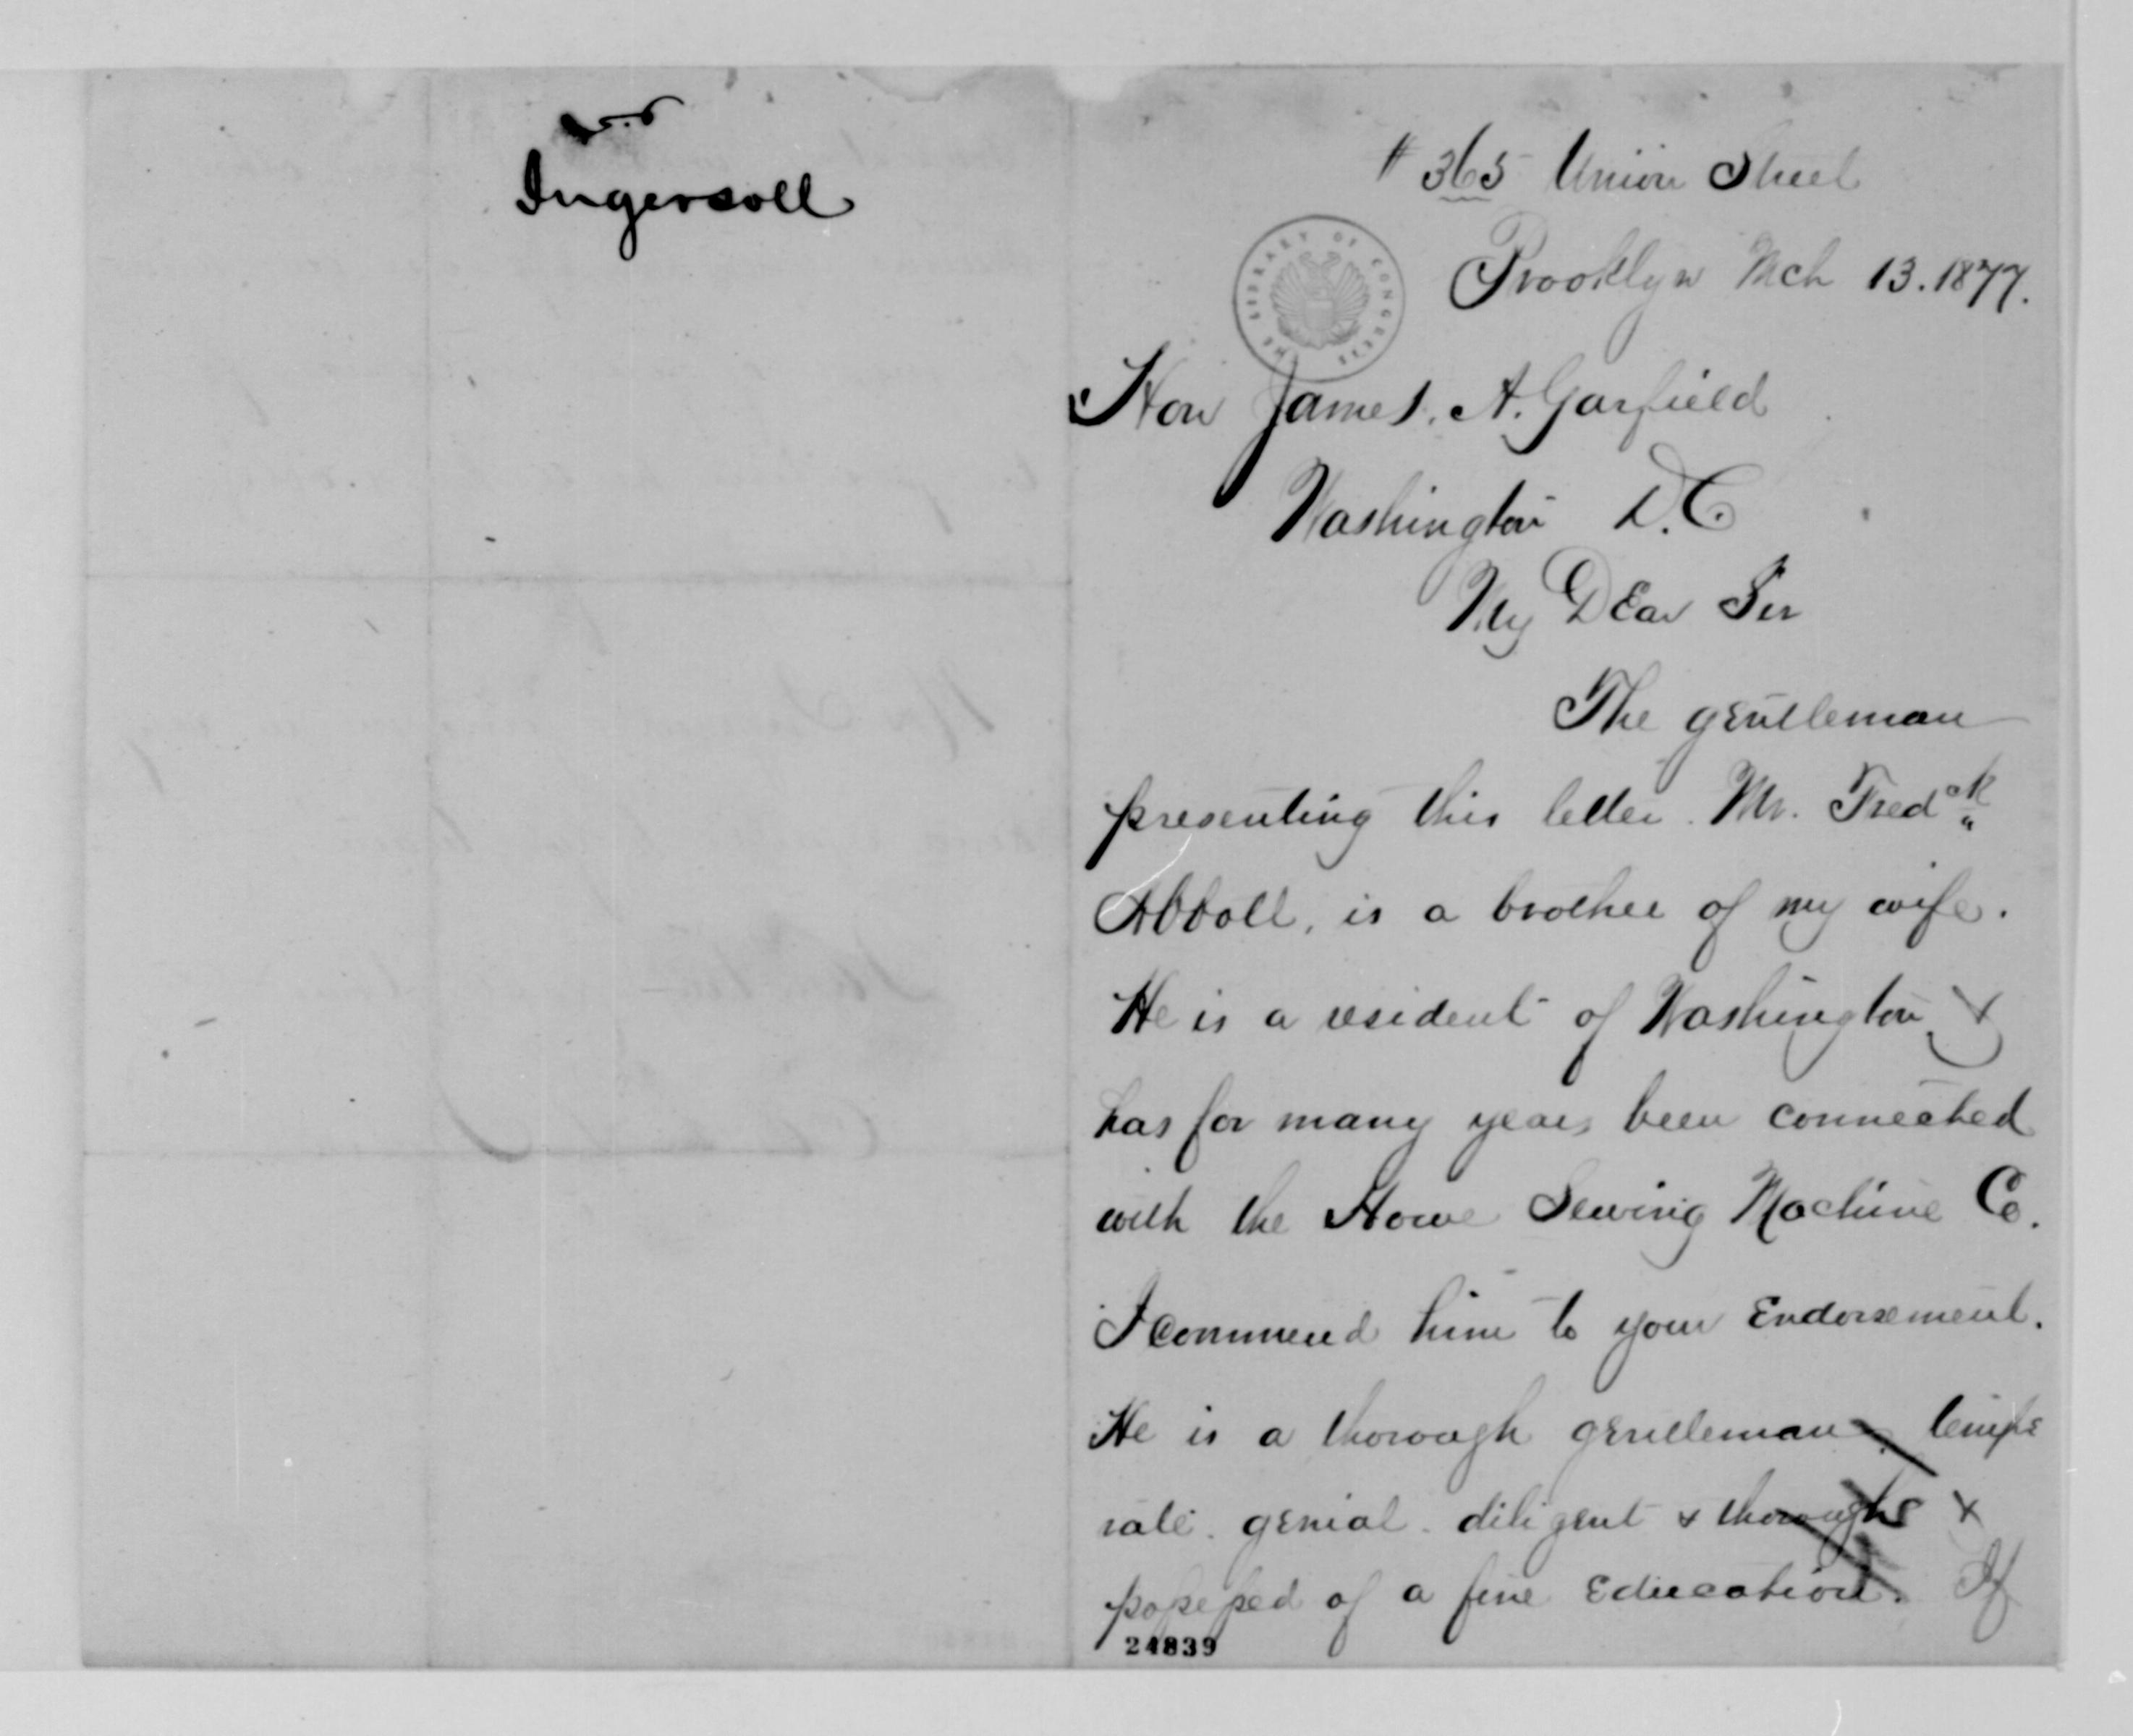 Ingersoll
# 365 Union Street
Brooklyn Mch 13. 1877.
THE LIBRARY OF CONGRESS
Hon James. A. Garfield
Washington D.C.
My Dear Sir
The gentleman
presenting this letter. Mr. Fredck
Abbott, is a brother of my wife.
He is a resident of Washington &
has for many years been connected
with the Howe Sewing Machine Co.
I commend him to your Endorsement.
He is a thorough gentleman. tempe
rate. genial. diligent & thorough &
possessed of a fine Education. If
24839